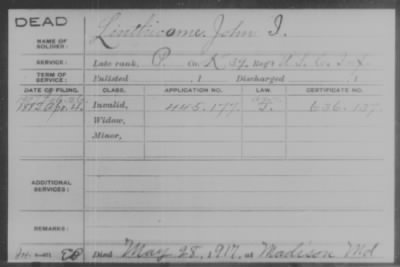 DEAD
NAME OF SOLDIER: Linthicome, John I.
SERVICE: Late rank, P. Co. K 39, Reg't U.S.C. Inf.
TERM OF SERVICE: Enlisted , 1 Discharged , 1
DATE OF FILING. CLASS. APPLICATION NO. LAW. CERTIFICATE NO.
Apr. Invalid, 445.177 636.137
Widow,
Minor,
ADDITIONAL SERVICES:
REMARKS:
Died May 28, 1917, at Madison Md